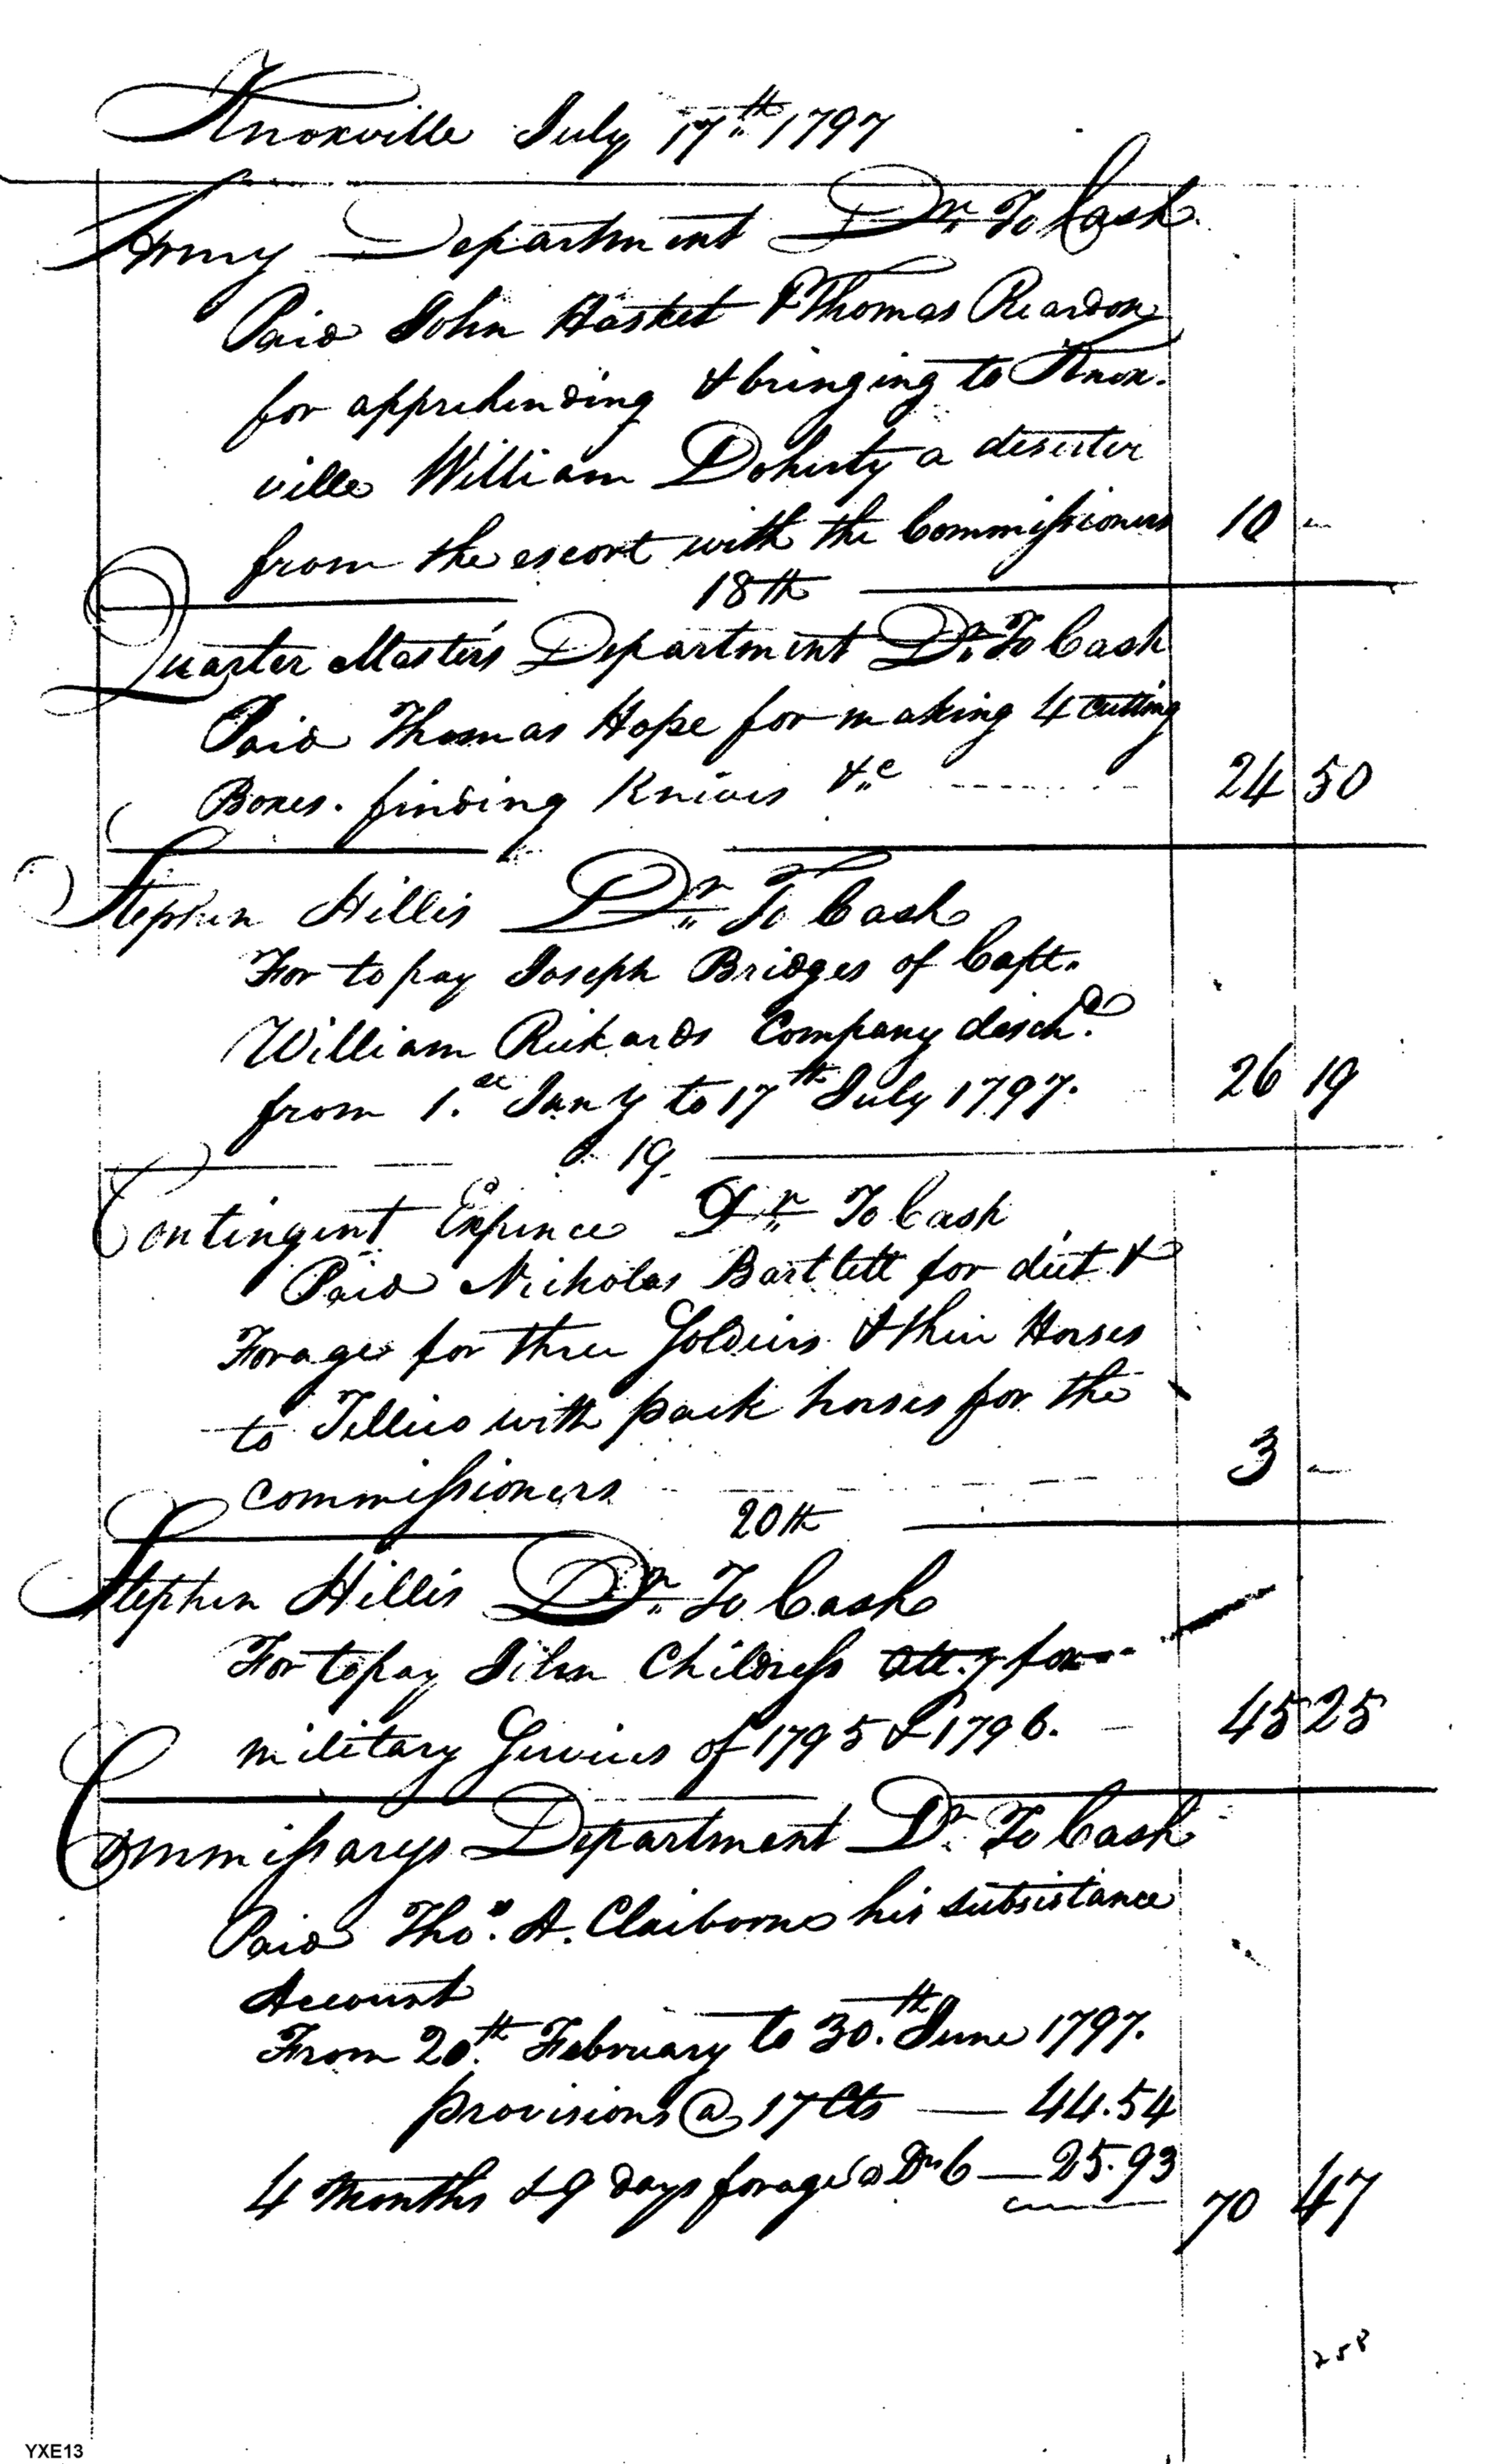 Knoxville July 17th 1797
Army Department Dr. To Cash
Paid John Hasket & Thomas Reardon
for apprehending & bringing to Knox-
ville William Doherty a deserter
from the escort with the Commissioners 10 -
18th
Quarter Masters Department Dr. To Cash
Paid Thomas Hope for making 4 cutting
Boxes. finding Knives &c 24 50
Stephen Hillis Dr. To Cash
For to pay Joseph Bridges of Capt.
William Rickards Company disch.d
from 1.st Jan y to 17th July 1797. 26 19
19
Contingent Expence Dr. To Cash
Paid Nicholas Bartlett for diet &
Forage for three Soldiers & their Horses
to Tellico with pack horses for the
commissioners 3 -
20th
Stephen Hillis Dr. To Cash
For to pay John Childress att.y for
military Services of 1795 & 1796. - 45 25
Commissarys Department Dr. To Cash
Paid Thos. A. Claiborne his subsistance
Account
From 20th February to 30.th June 1797.
provisions @ 17 Cts — 44.54
4 Months & 9 days forage @ Drs 6 — 25.93 70 47
258
YXE13